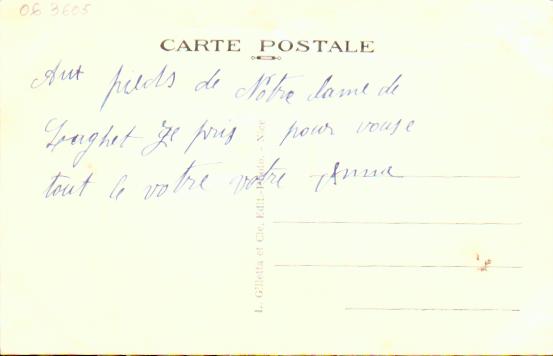 06 3605
CARTE POSTALE
Aux pieds de Nôtre dame de
Laghet Je pris pour vouse
tout le votre votre Anna
L. Gilletta et Cie, Edit.-Photo. - Nice